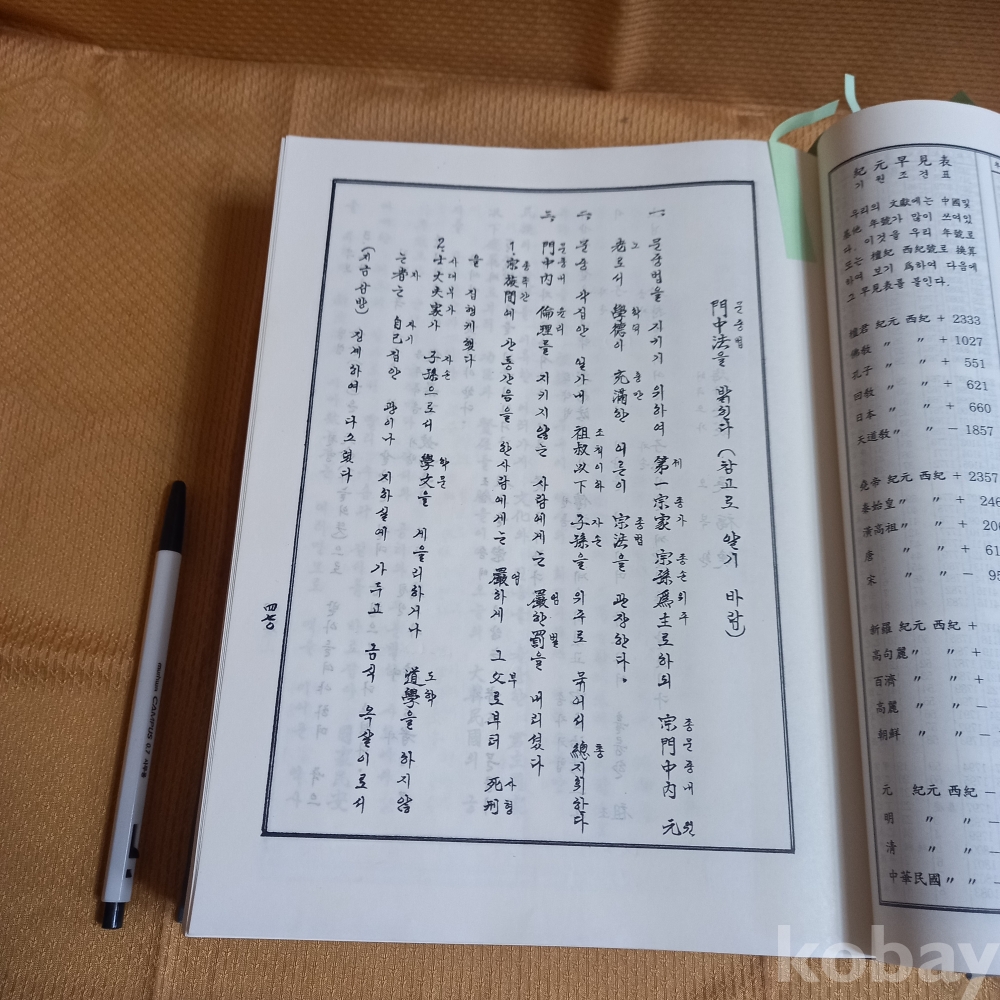 문중법
門中法을 밝힌다 (참고로 알기 바람)
제 종가 종손위주 종문중내 원
一. 문중법을 지키기 위하여 第一宗家 宗孫爲主로하되 宗門中內 元
노 학덕 충만 종법
老로서 學德이 充滿한 어른이 宗法을 관장한다.
조숙이하 자손 총
二. 문중 각집안 일가내 祖叔以下 子孫을 위주로 묶어서 總지휘하다
문중내 윤리 엄 벌
三. 門中內 倫理를 지키지 않는 사람에게는 嚴한罰을 내리셨다
종족간 엄 부 사형
1. 宗族間에 간통간음을 한사람에게는 嚴하게 그 父로부터 死刑
을 집행케 했다
사대부가 자손 학문 도학
2. 士大夫家가 子孫으로서 學文을 게을리하거나 道學을 하지않
자 자기
는者는 自己집안 광이나 지하실에 가두고 금식 옥살이로서
(지금감방) 징계하여 다스렸다
四七〇
紀元早見表
기원조견표
우리의 文獻에는 中國및
其他 年號가 많이 쓰여있
다. 이것을 우리 年號로
또는 檀紀 西紀號로 換算
하여 보기 爲하여 다음에
그 早見表를 붙인다.
檀君 紀元 西紀 + 2333
佛敎 〃 〃 + 1027
孔子 〃 〃 + 551
回敎 〃 〃 + 621
日本 〃 〃 + 660
天道敎 〃 〃 − 1857
堯帝 紀元 西紀 + 2357
秦始皇 〃 〃 + 246
漢高祖 〃 〃 + 206
唐 〃 〃 + 61
宋 〃 〃 − 95
新羅 紀元 西紀 +
高句麗 〃 〃 +
百濟 〃 〃 +
高麗 〃 〃 −
朝鮮 〃 〃 −
元 紀元 西紀 −
明 〃 〃 −
清 〃 〃 −
中華民國 〃 〃 −
CAMPUS 0.7
kobay